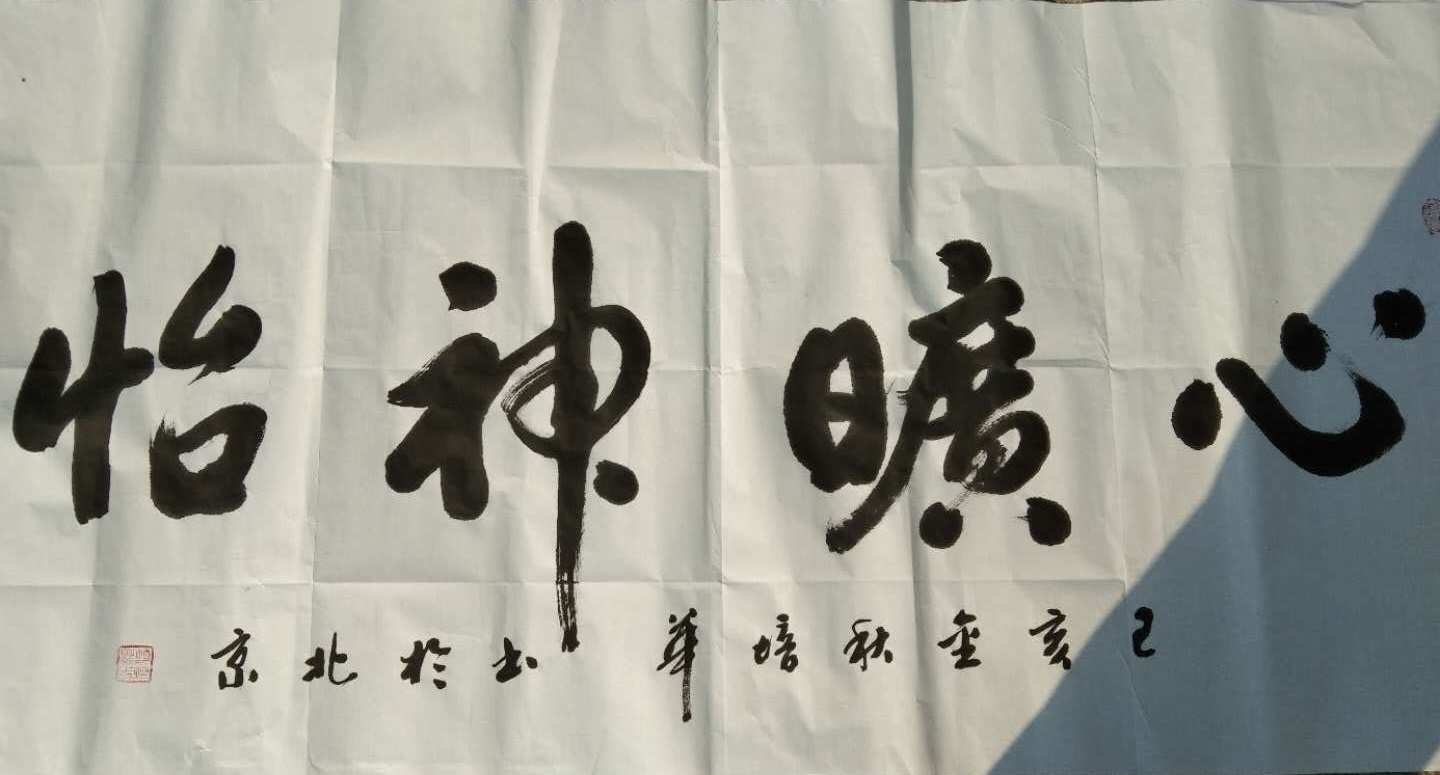 心曠神怡
己亥金秋培華書於北京